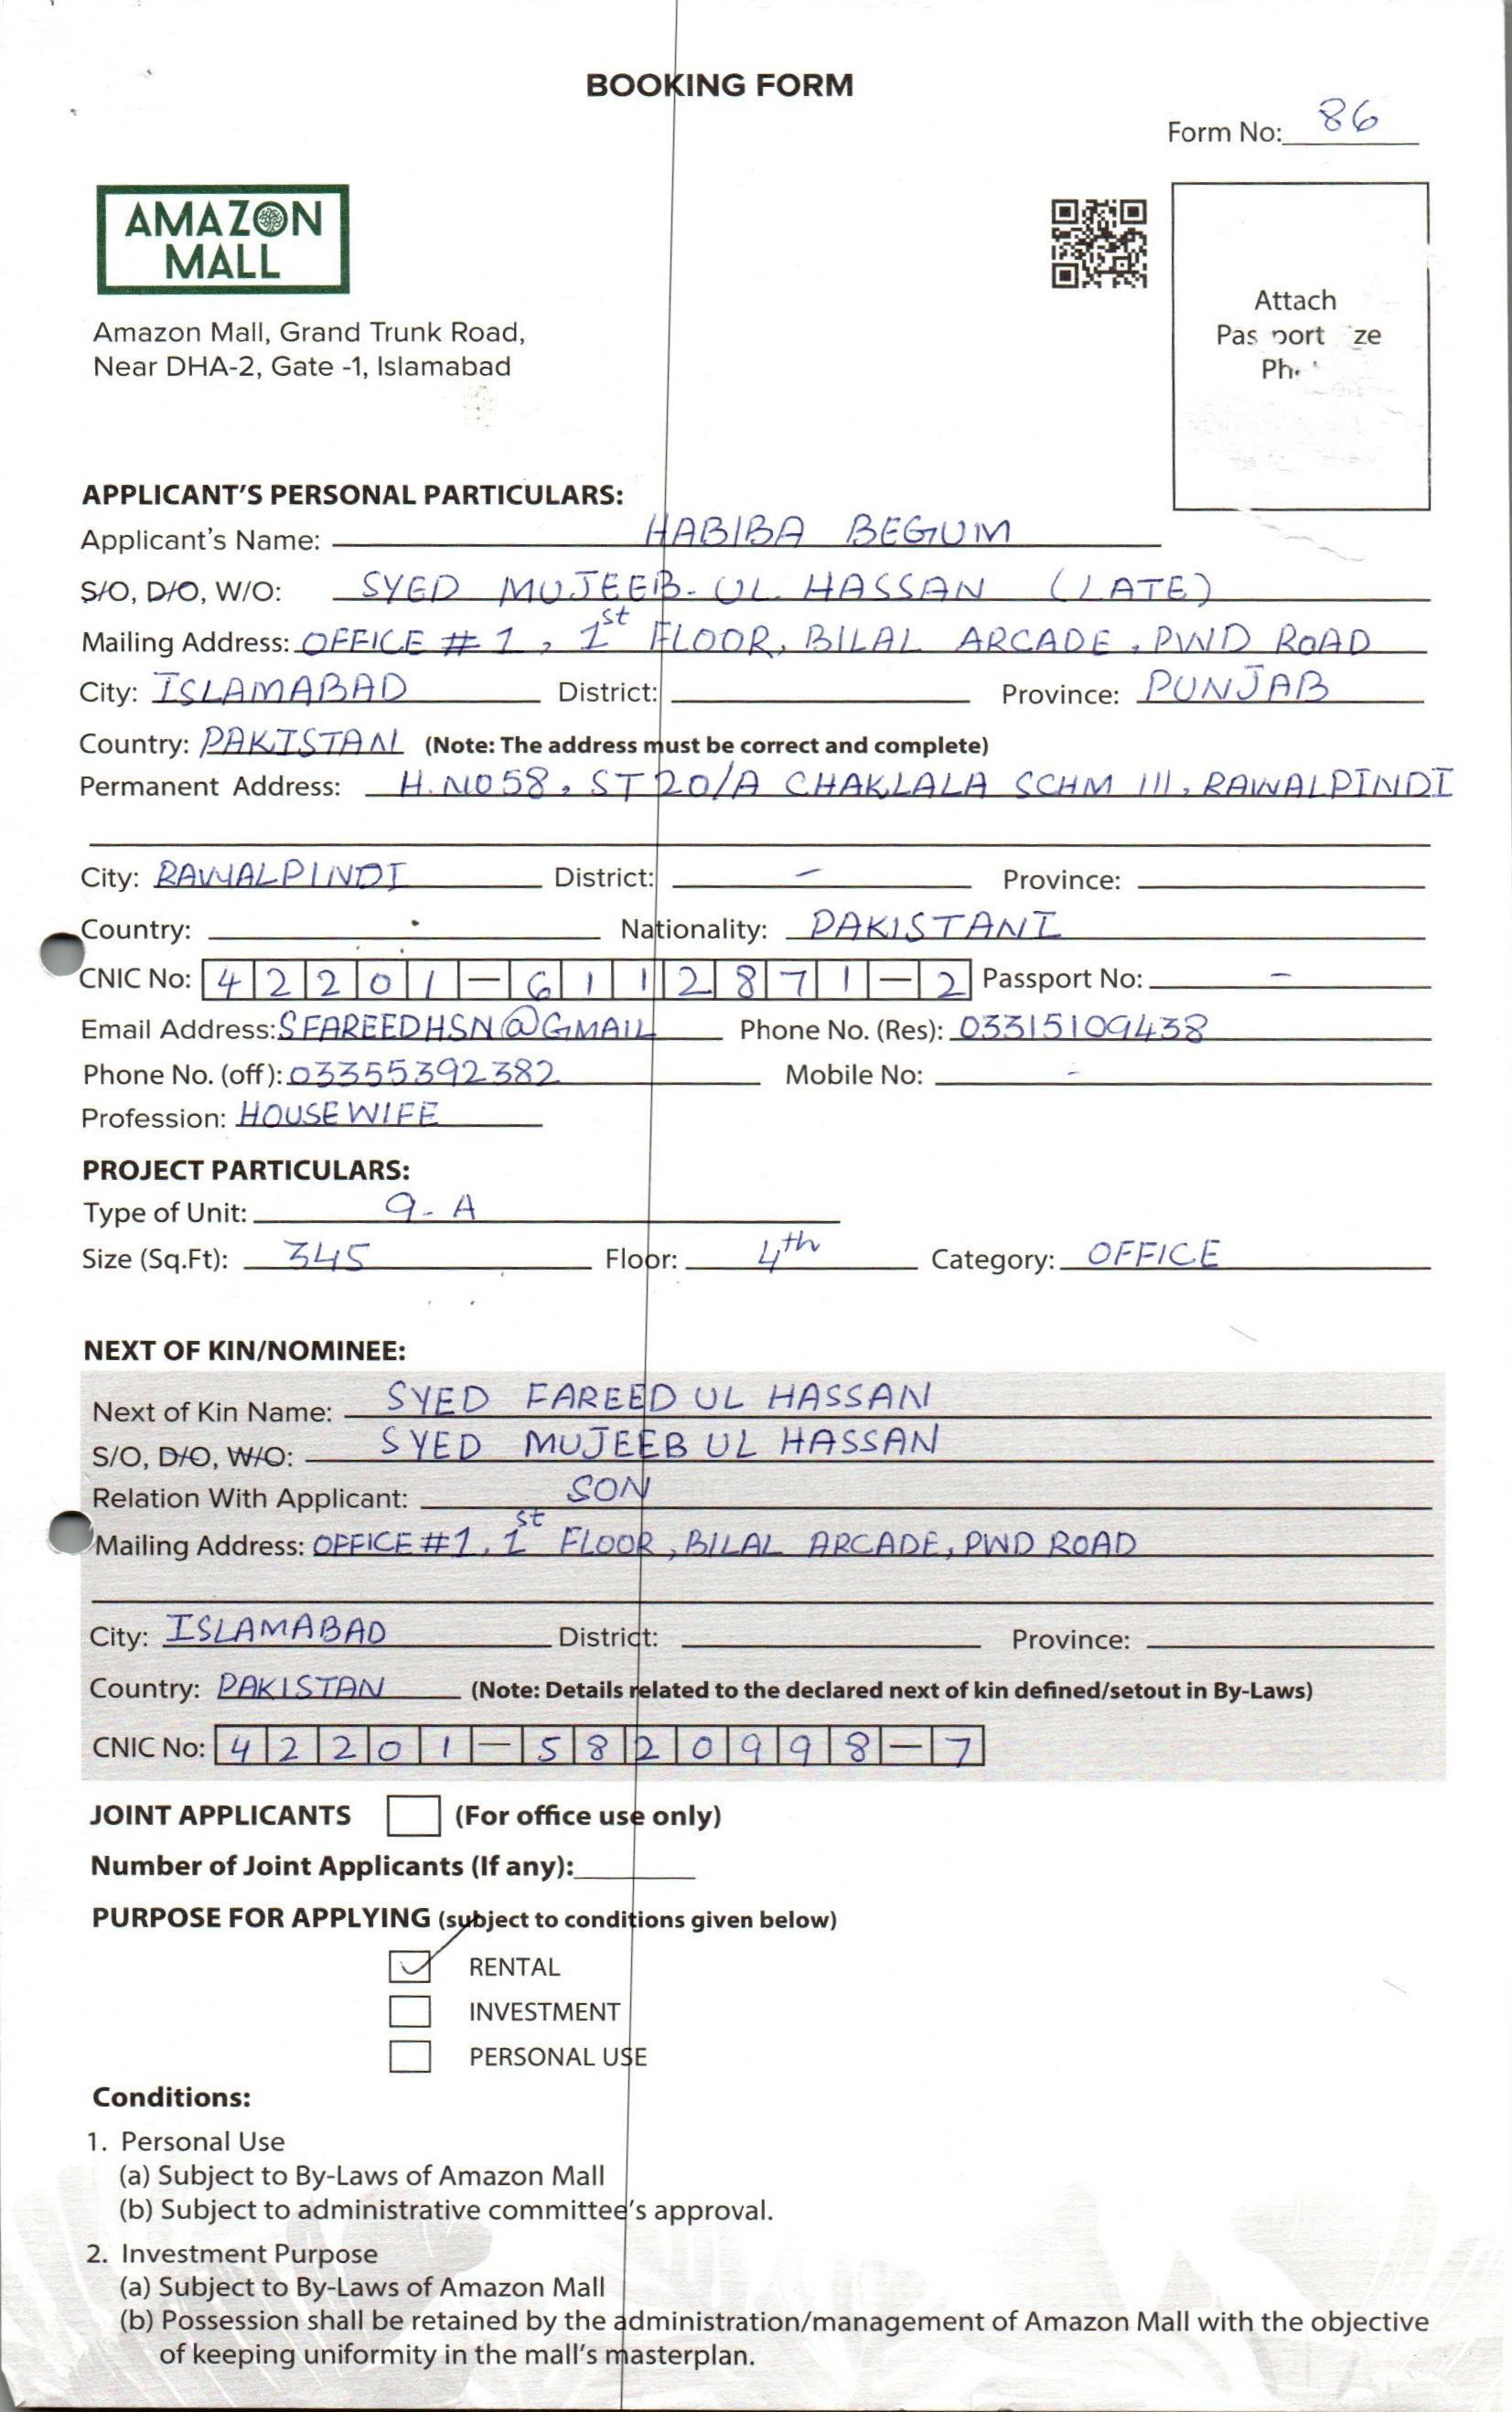 BOOKING FORM
Form No: 86
AMAZON
MALL
Amazon Mall, Grand Trunk Road,
Near DHA-2, Gate -1, Islamabad
Attach
APPLICANT'S PERSONAL PARTICULARS:
Applicant's Name: HABIBA BEGUM
S/O, D/O, W/O: SYED MUJEEB-UL HASSAN (LATE)
Mailing Address: OFFICE # 1, 1st FLOOR, BILAL ARCADE, PWD ROAD
City: ISLAMABAD District: Province: PUNJAB
Country: PAKISTAN (Note: The address must be correct and complete)
Permanent Address: H.NO 58, ST 20/A CHAKLALA SCHM III, RAWALPINDI
City: RAWALPINDI District: - Province:
Country: Nationality: PAKISTANI
CNIC No: 42201-6112871-2 Passport No: -
Email Address: SFAREEDHSN@GMAIL Phone No. (Res): 03315109438
Phone No. (off): 03355392382 Mobile No: -
Profession: HOUSEWIFE
PROJECT PARTICULARS:
Type of Unit: 9-A
Size (Sq.Ft): 345 Floor: 4th Category: OFFICE
NEXT OF KIN/NOMINEE:
Next of Kin Name: SYED FAREED UL HASSAN
S/O, D/O, W/O: SYED MUJEEB UL HASSAN
Relation With Applicant: SON
Mailing Address: OFFICE #1, 1st FLOOR, BILAL ARCADE, PWD ROAD
City: ISLAMABAD District: Province:
Country: PAKISTAN (Note: Details related to the declared next of kin defined/setout in By-Laws)
CNIC No: 42201-5820998-7
JOINT APPLICANTS (For office use only)
Number of Joint Applicants (If any):
PURPOSE FOR APPLYING (subject to conditions given below)
RENTAL
INVESTMENT
PERSONAL USE
Conditions:
1. Personal Use
(a) Subject to By-Laws of Amazon Mall
(b) Subject to administrative committee's approval.
2. Investment Purpose
(a) Subject to By-Laws of Amazon Mall
(b) Possession shall be retained by the administration/management of Amazon Mall with the objective
of keeping uniformity in the mall's masterplan.